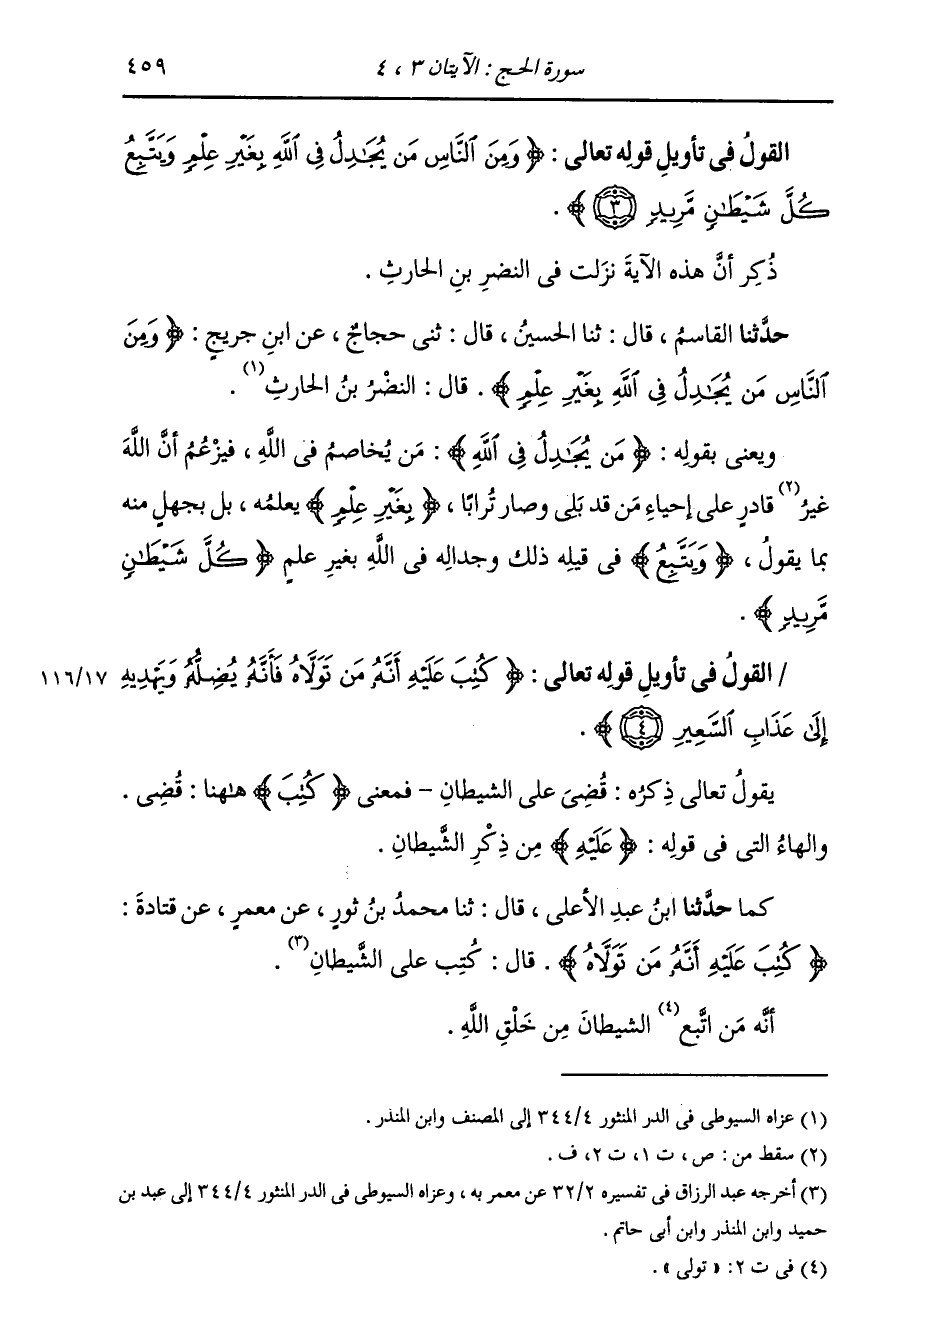 سورة الحج : الآيتان ٣ ، ٤ ٤٥٩
القولُ فى تأويلِ قولِه تعالى : ﴿ وَمِنَ ٱلنَّاسِ مَن يُجَٰدِلُ فِى ٱللَّهِ بِغَيْرِ عِلْمٍ وَيَتَّبِعُ
كُلَّ شَيْطَٰنٍ مَّرِيدٍ ٣ ﴾ .
ذُكِر أنَّ هذه الآيةَ نزَلت فى النضرِ بنِ الحارثِ .
حدَّثنا القاسمُ ، قال : ثنا الحسينُ ، قال : ثنى حجاجٌ ، عن ابنِ جريجٍ : ﴿ وَمِنَ
ٱلنَّاسِ مَن يُجَٰدِلُ فِى ٱللَّهِ بِغَيْرِ عِلْمٍ ﴾ . قال : النضْرُ بنُ الحارثِ (١) .
ويعنى بقولِه : ﴿ مَن يُجَٰدِلُ فِى ٱللَّهِ ﴾ : مَن يُخاصمُ فى اللَّهِ ، فيزْعُمُ أنَّ اللَّهَ
غيرُ (٢) قادرٍ على إحياءِ مَن قد بَلِى وصار تُرابًا ، ﴿ بِغَيْرِ عِلْمٍ ﴾ يعلمُه ، بل بجهلٍ منه
بما يقولُ ، ﴿ وَيَتَّبِعُ ﴾ فى قيلِه ذلك وجدالِه فى اللَّهِ بغيرِ علمٍ ﴿ كُلَّ شَيْطَٰنٍ
مَّرِيدٍ ﴾ .
/ القولُ فى تأويلِ قولِه تعالى : ﴿ كُتِبَ عَلَيْهِ أَنَّهُۥ مَن تَوَلَّاهُ فَأَنَّهُۥ يُضِلُّهُۥ وَيَهْدِيهِ ١١٦/١٧
إِلَىٰ عَذَابِ ٱلسَّعِيرِ ٤ ﴾ .
يقولُ تعالى ذِكرُه : قُضِىَ على الشيطانِ – فمعنى ﴿ كُتِبَ ﴾ هلهنا : قُضِى .
والهاءُ التى فى قولِه : ﴿ عَلَيْهِ ﴾ مِن ذِكْرِ الشَّيطانِ .
كما حدَّثنا ابنُ عبدِ الأعلى ، قال : ثنا محمدُ بنُ ثورٍ ، عن معمرٍ ، عن قتادةَ :
﴿ كُتِبَ عَلَيْهِ أَنَّهُۥ مَن تَوَلَّاهُ ﴾ . قال : كُتِب على الشَّيطانِ (٣) .
أنَّه مَن اتَّبع (٤) الشيطانَ مِن خَلْقِ اللَّهِ .
(١) عزاه السيوطى فى الدر المنثور ٣٤٤/٤ إلى المصنف وابن المنذر .
(٢) سقط من : ص ، ت ١، ت ٢، ف .
(٣) أخرجه عبد الرزاق فى تفسيره ٣٢/٢ عن معمر به ، وعزاه السيوطى فى الدر المنثور ٣٤٤/٤ إلى عبد بن
حميد وابن المنذر وابن أبى حاتم .
(٤) فى ت ٢: « تولى » .